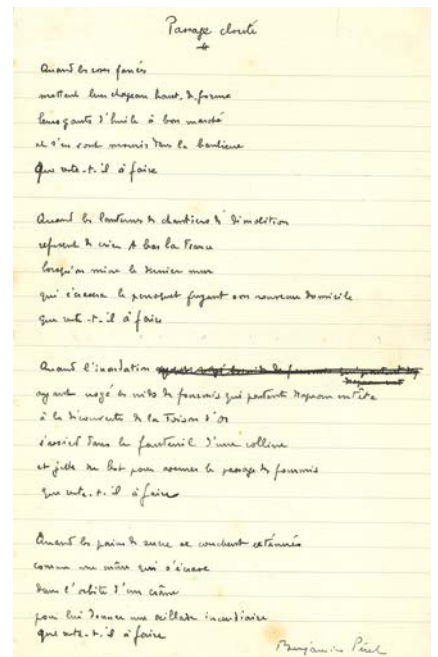 Passage clouté
Quand les roses fanées
mettent leur chapeau haut de forme
leurs gants d'huile à bon marché
et s'en vont mourir dans la banlieue
Que reste-t-il à faire
Quand les lanternes de chantiers de démolition
refusent de crier A bas la France
lorsqu'on mine le dernier mur
qui écrasera le perroquet fuyant son nouveau domicile
que reste-t-il à faire
Quand l'inondation
ayant noyé les nids de fourmis qui partent drapeau en tête
à la découverte de la Toison d'Or
s'assied dans le fauteuil d'une colline
et jette du lest pour assurer le passage des fourmis
que reste-t-il à faire
Quand les pains de sucre se couchent exténués
comme une mûre qui s'écrase
dans l'orbite d'un crâne
pour lui donner une œillade incendiaire
que reste-t-il à faire
Benjamin Péret